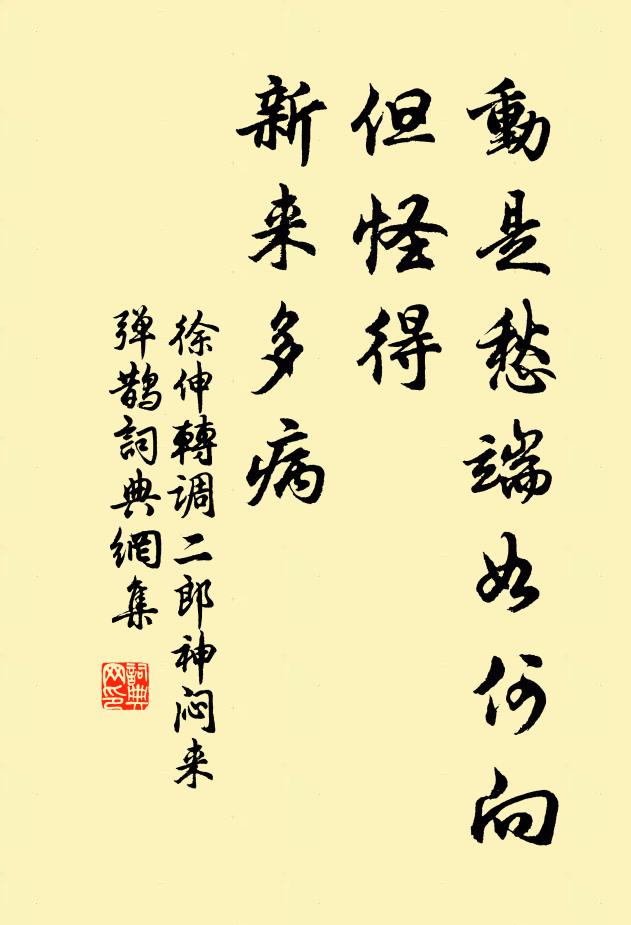 動是愁端如何向
但怪得
新来多病
徐伸轉调二郎神闷来
弹鹊詞典網集
詞典網印